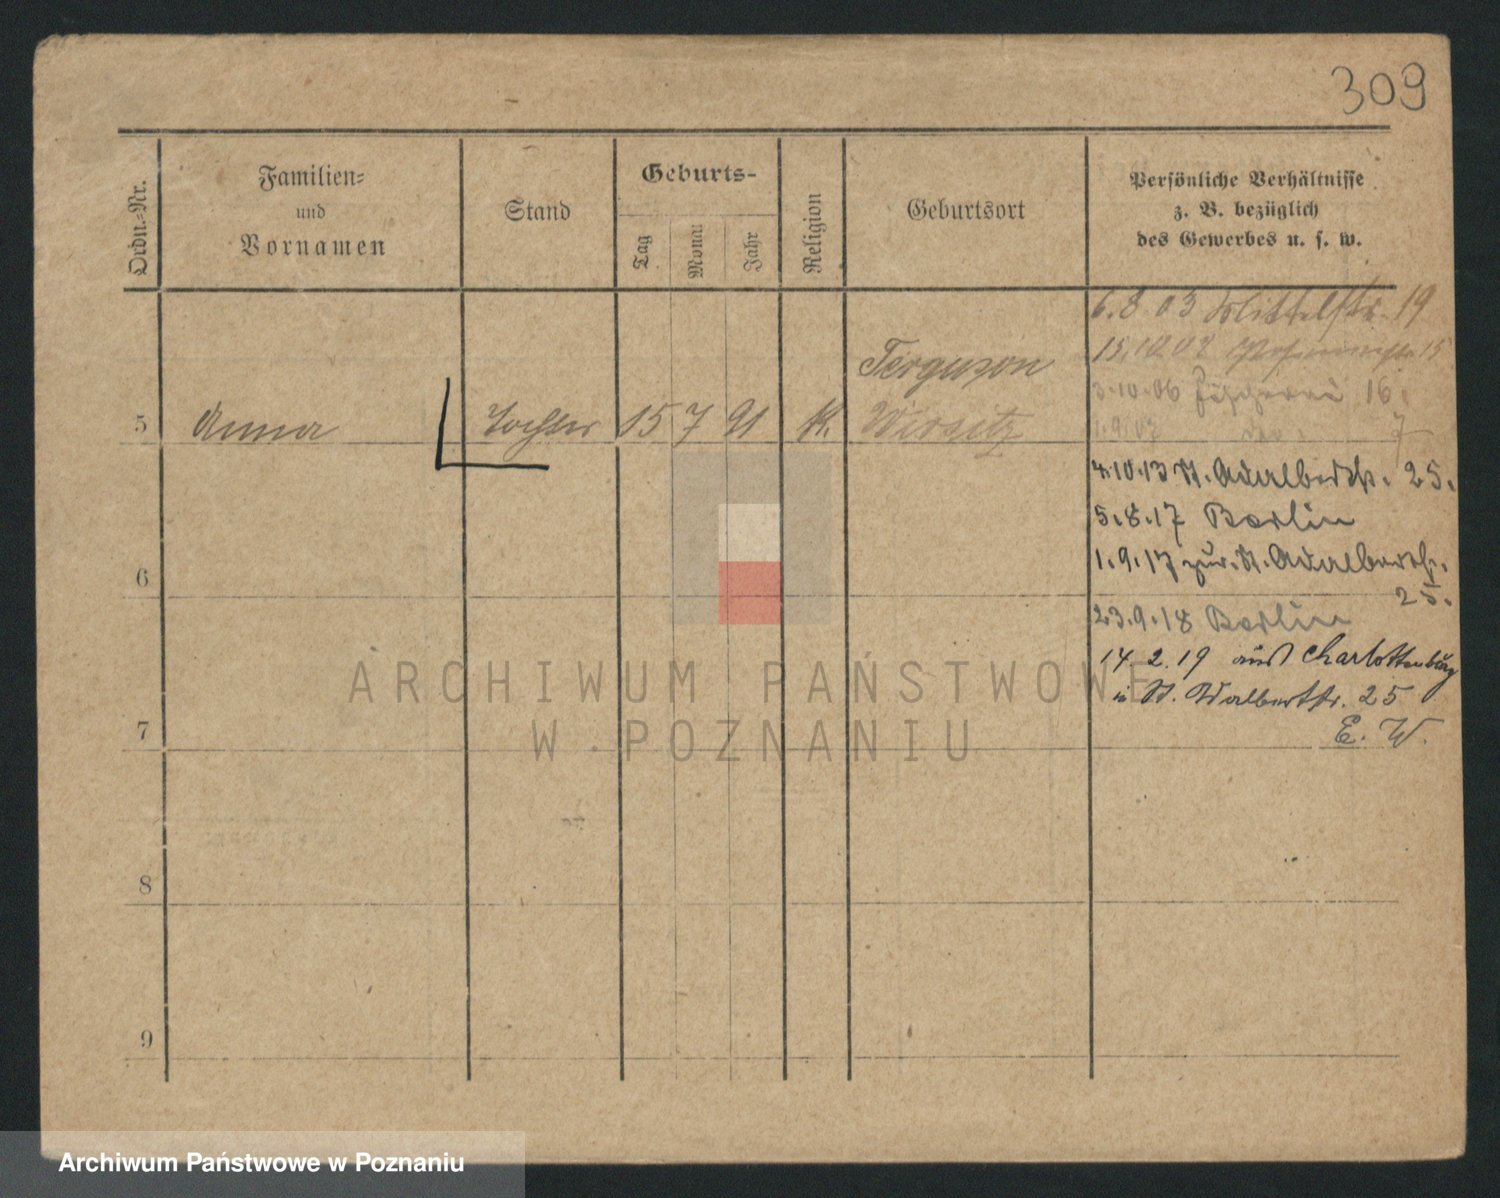 309
Ordn.-Nr.
Familien-
und
Vornamen
Stand
Geburts-
Tag
Monat
Jahr
Religion
Geburtsort
Persönliche Verhältnisse
z. B. bezüglich
des Gewerbes u. s. w.
6.8.03 Mittelstr. 19
15
3.10.06 Fischerei 16.
Ferguson
5 Anna Tochter 15 7 91 K. Wirsitz
1.9.07 do. 7
4.10.13 St. Adalbertstr. 25.
5.8.17 Berlin
6
1.9.17 zur. St. Adalbertstr.
25.
23.9.18 Berlin
14.2.19 aus Charlottenburg
n St. Adalbertstr. 25
7
E. W.
8
9
ARCHIWUM PAŃSTWOWE
W POZNANIU
Archiwum Państwowe w Poznaniu